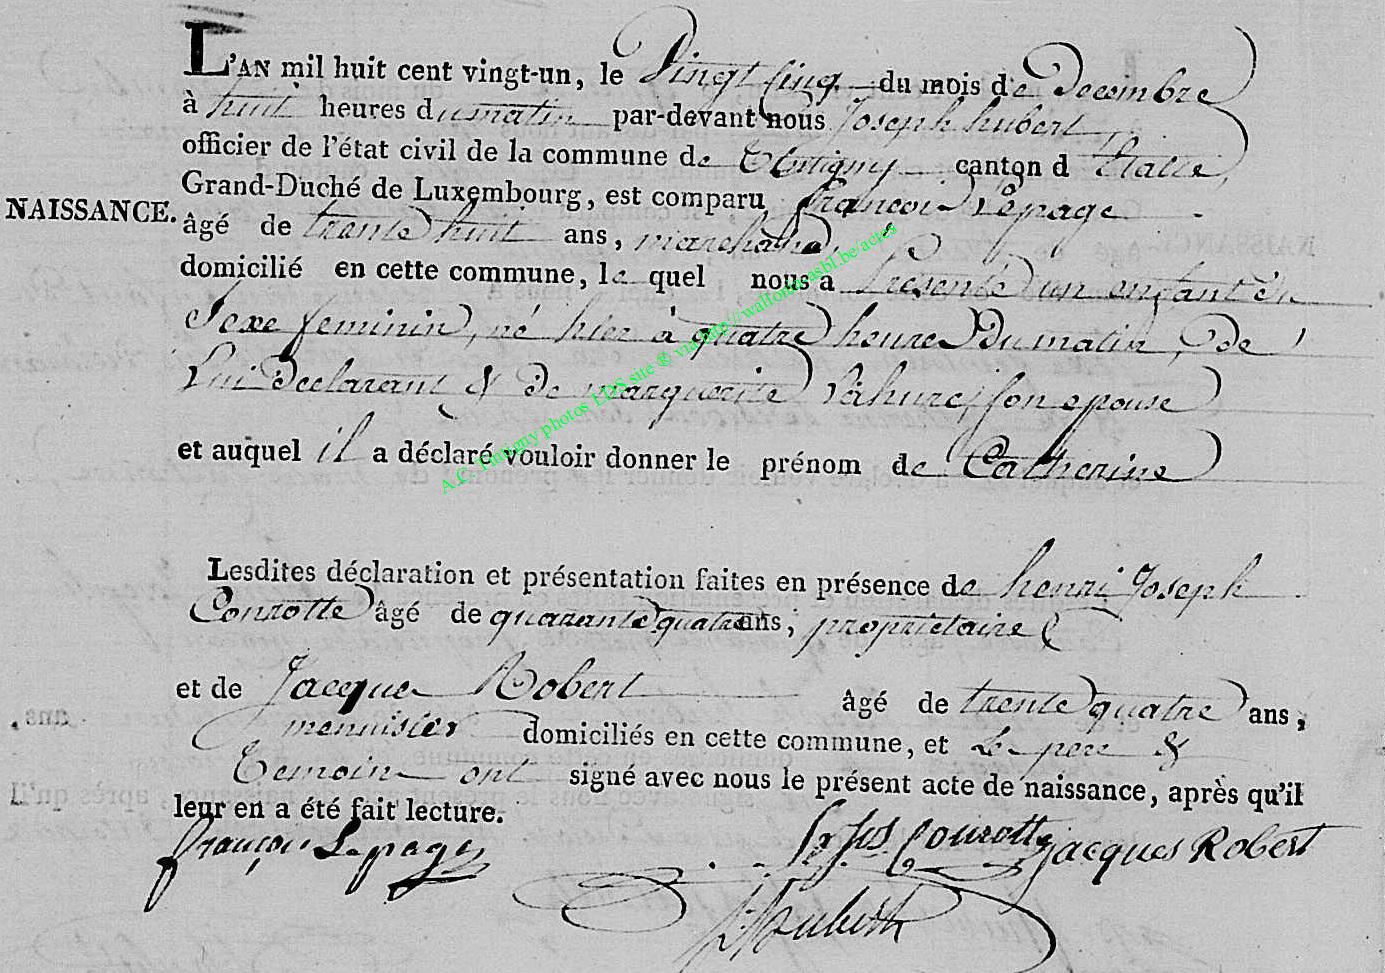 L'AN mil huit cent vingt-un, le Vingt cinq du mois de Decembre
à huit heures du matin par-devant nous Joseph hubert,
officier de l'état civil de la commune de Tintigny canton d'Etalle,
Grand-Duché de Luxembourg, est comparu françois Lepage
NAISSANCE.
âgé de trente huit ans, marchand,
domicilié en cette commune, le quel nous a Présenté un enfant du
Sexe feminin, né hier à quatre heures Du matin, De
Lui Declarant & De marguerite Lahure, son epouse
et auquel il a déclaré vouloir donner le prénom de Catherine
A.C. Tintigny photos LDS site ® via http://wallonia-asbl.be/actes
Lesdites déclaration et présentation faites en présence de henri Joseph
Conrotte âgé de quarante quatre ans, propriétaire
et de Jacques Robert âgé de trente quatre ans,
menuisier domiciliés en cette commune, et Le pere &
Temoins ont signé avec nous le présent acte de naissance, après qu'il
leur en a été fait lecture.
françois Lepage
Conrotte Jacques Robert
Hubert